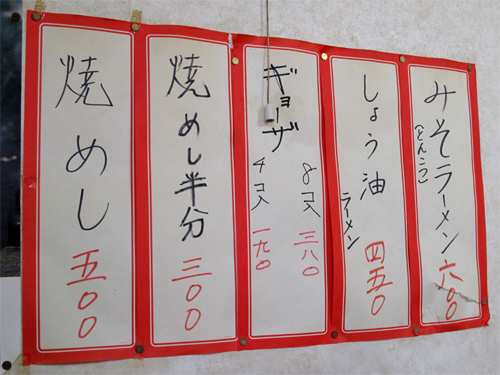 みそラーメン 六〇〇
(とんこつ)
しょう油
ラーメン
四五〇
ギョーザ
8コ入 三八〇
4コ入 一九〇
焼めし半分 三〇〇
焼めし 五〇〇